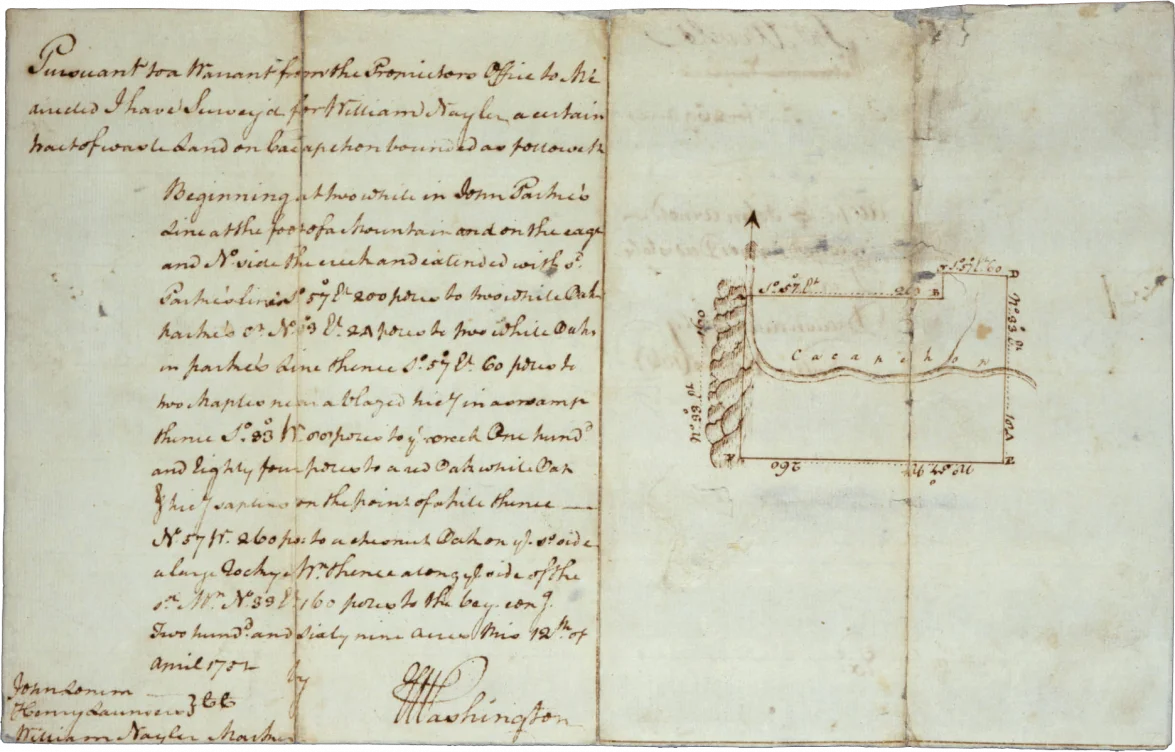 Pursuant to a Warrant from the Proprietors Office to Me
directed I have Survey'd for William Nayler a certain
tract of waste Land on Cacapehon bounded as followeth
Beginning at two white in John Parke's
Line at the foot of a Mountain and on the edge
and No. side the creek and extended with sd.
Parke's line So. 57 Et. 200 poles to two white Oaks
parke's Cr. No. 33 Et. 24 poles to two white Oaks
in parke's Line thence So. 57 Et. 60 poles to
two Maples near a blazed hicy in a swamp
thence So. 33 Wt. poles to ye. creek One hundd.
and Eighty four poles to a red Oak white Oak
& hicy saplins on the point of a hill thence —
No. 57 Wt. 260 po: to a chesnut Oak on ye. So. side
a large Rockye Mn. thence along ye. side of the
sd. Mn. No. 33 Et. 160 poles to the beg. cong.
Two hundd. and Sixty nine Acres this 12th. of
April 1752 by
John Lonem
Henry Launders } CC
William Nayler Marker
GWashington
So. 57 Et. 200 B
So. 57 Et. 60 D
Cacapehon
No. 33 Et. 160
No. 57 Wt. 260
E